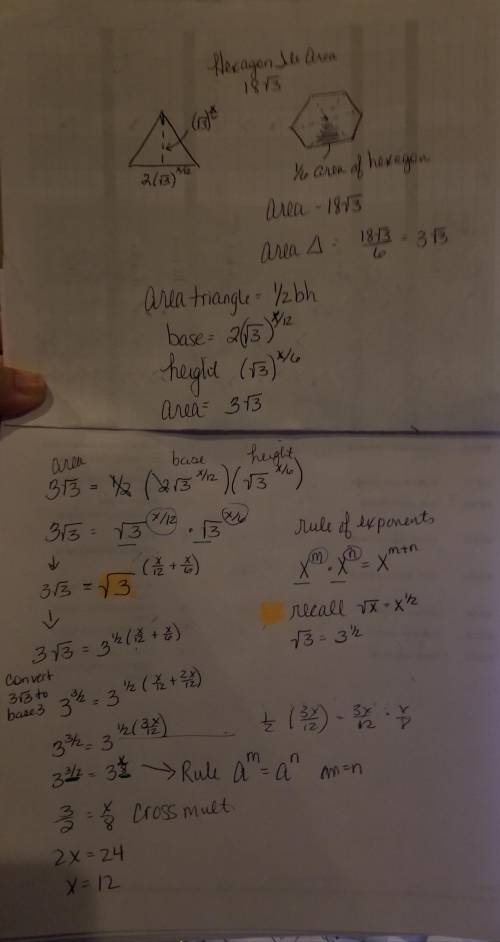 Hexagon tile area
18√3
(√3)^x/6
2(√3)^x/12
1/6 area of hexagon
area = 18√3
area Δ = 18√3/6 = 3√3
area triangle = 1/2bh
base = 2(√3)^x/12
height (√3)^x/6
area = 3√3
area base height
3√3 = 1/2 (2√3^x/12)(√3^x/6)
3√3 = √3^(x/12) · √3^(x/6)
rule of exponents
x^m · x^n = x^m+n
↓
3√3 = √3^(x/12 + x/6)
recall √x = x^1/2
√3 = 3^1/2
↓
3√3 = 3^1/2(x/12 + x/6)
convert
3√3 to
base 3
3^3/2 = 3^1/2(x/12 + 2x/12)
3^3/2 = 3^1/2(3x/12)
1/2 (3x/12) = 3x/12 · x/8
3^3/2 = 3^x/8 → Rule a^m = a^n m=n
3/2 = x/8 cross mult.
2x = 24
x = 12